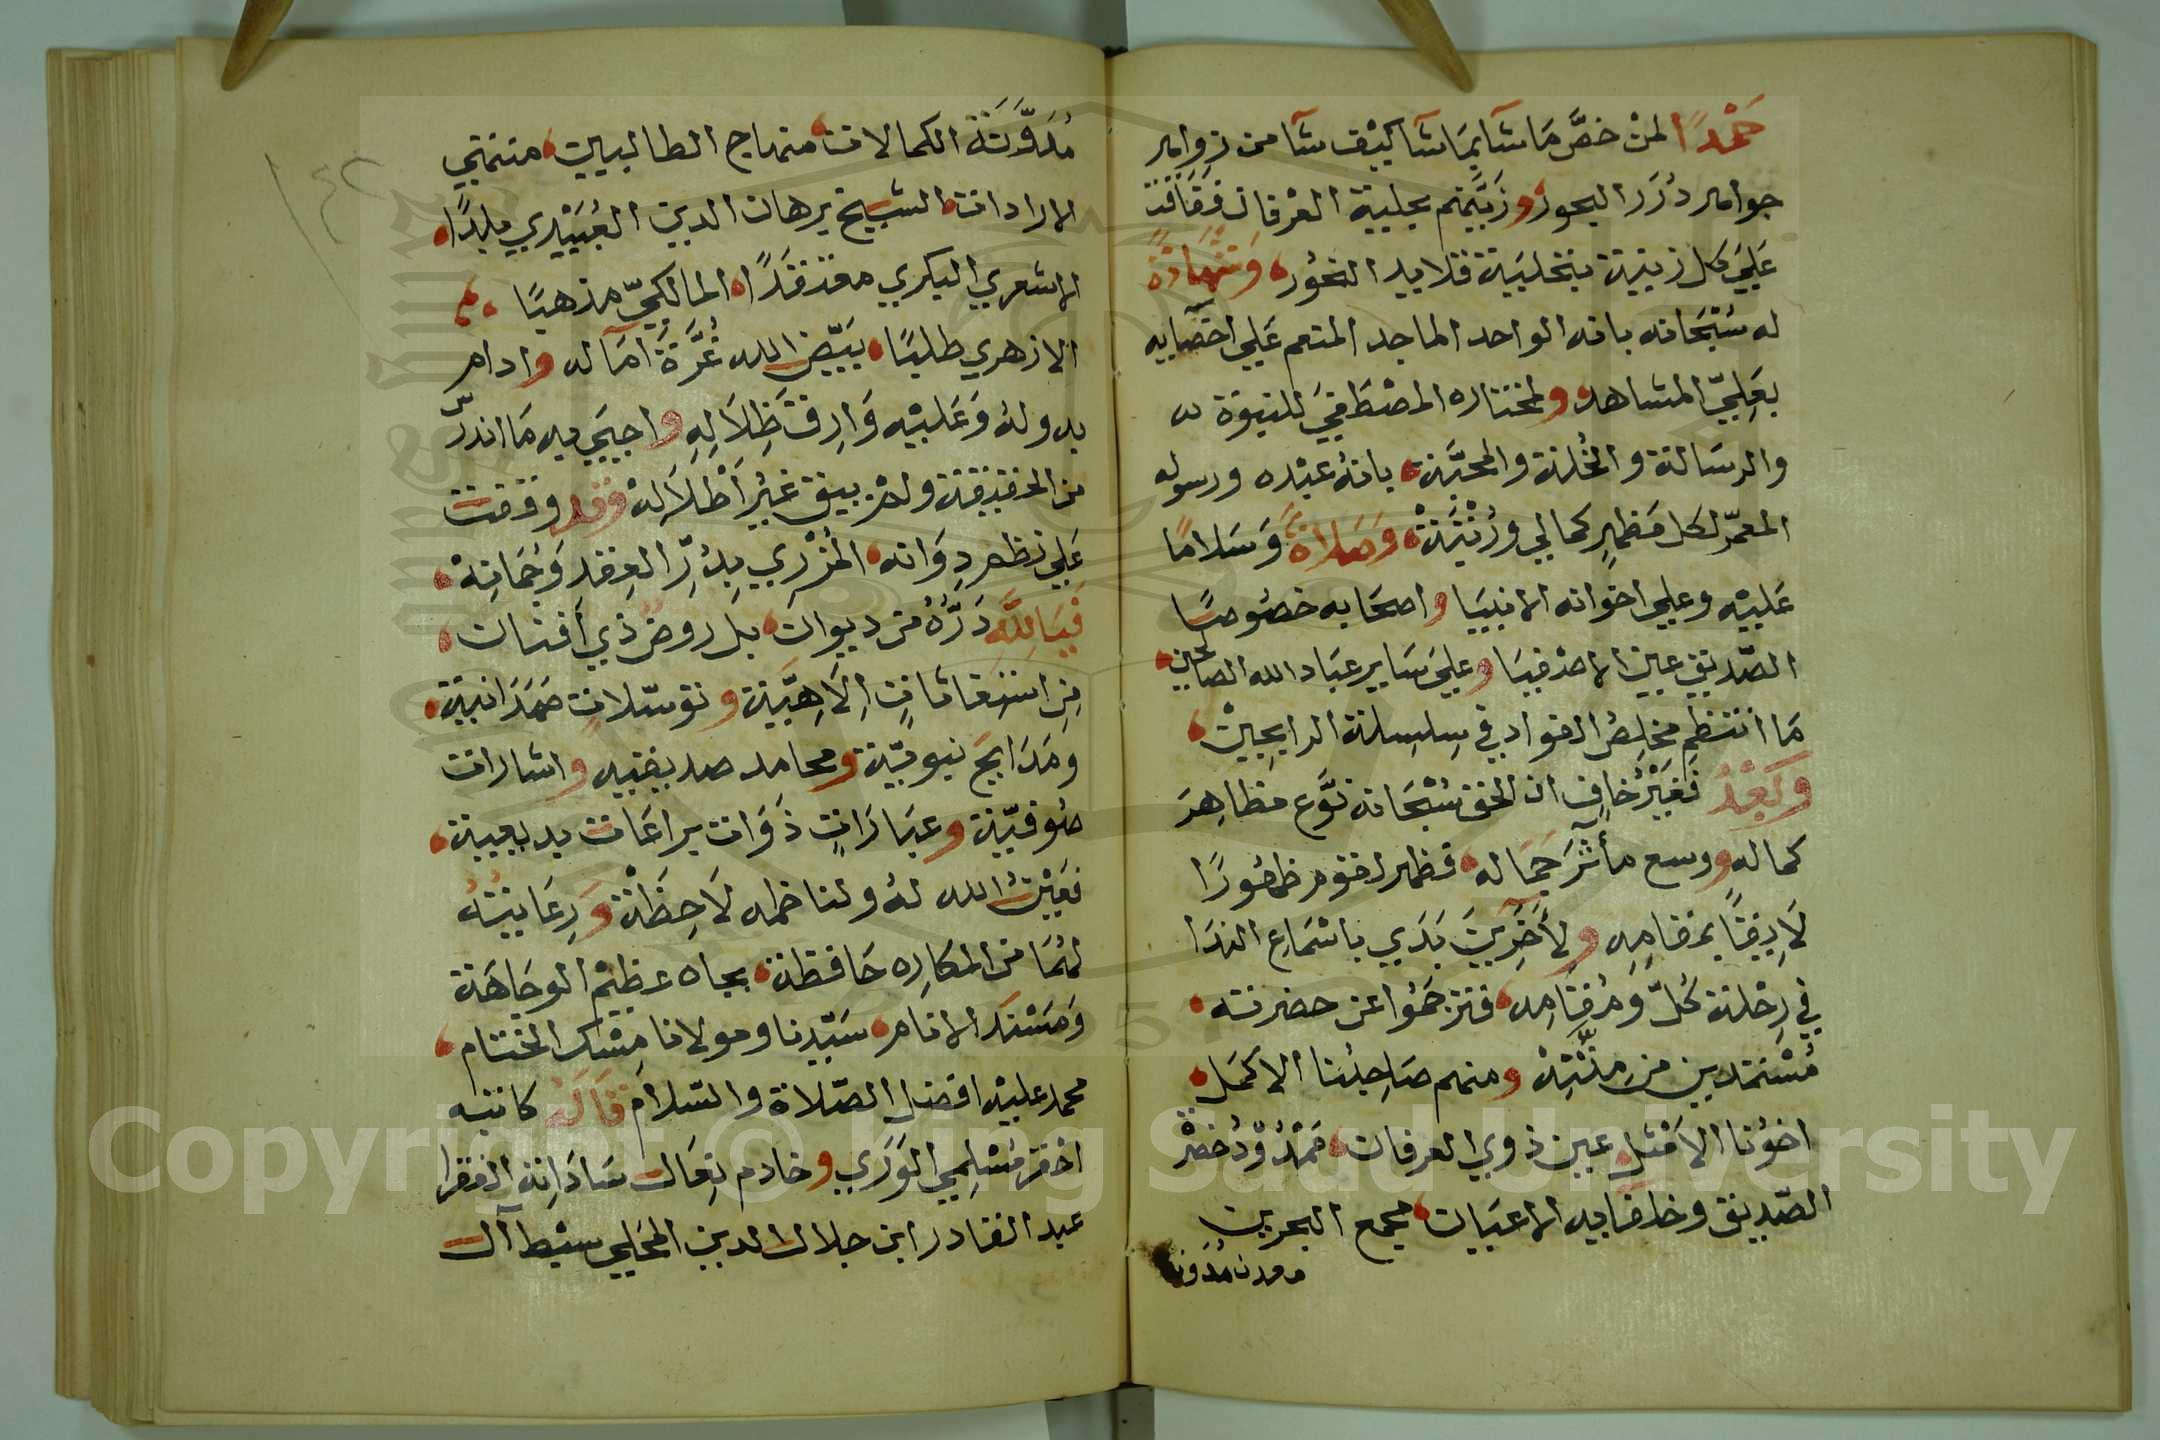 حَمْدًا لمن خصَّ مَا شآ بِمَا شآ كيْف شآ من زواهر
جواهر دُرَر البحور وزَيَّنهم بحلية العرفان فرَقَا فت
عَليَ كل زينة بتحلية قلايد النحُور، وَشَهَادَةً
له سُبْحَانه بانه الواحد الماجد المنعم عَلي احصَّآيه
بِعَلِيّ المشاهد ولمختاره المصْطَفَيَ للنبوة
والرسَالة والخُلة والمحبَّة، بانهُ عبْده ورسوله
الممدّ لكل مَظهرٍ كمالي وَرُتْبَةْ، وَصَلاةً وَسَلامًا
عَليْه وعلي اخوانه الانبيَا واصحَابه خصُوصًا
الصّديق عين الاصْفيَا وعليَ سَاير عبَاد الله الصالحين،
مَا انتظَم مخلِصُ الفواد في سِلسِلة الرابحِينْ،
وَبَعْدُ فَغيْرُ خافٍ ان الحق سُبْحَانه نوَّع مظاهِرَ
كماله ووسع مأثرَ جَمَاله، فظهر لقوم ظهُورًا
لَايِقًا بمقامِهِ ولآخَرِينَ بَدَي باسْمَاع الندَا
في رِحْلة كُلٍّ وَمُقامِه، فترجمُوا عن حضرته،
مُسْتمدين من مِنَّتِهْ ومنهم صَاحِبُنا الاكمَل،
اخوُنا الاَمْثل عين ذوي العرفان، مَمْدُوْدُ حضرْة
الصّديق وخلفَايه الاعيَان، مجمع البحرين
معدن مُدَوَّنة
مُدَوَّنَة الكمالات، منهاج الطالبين، منتهي
الارادات، الشيخ برهان الدين العُبَيْدي بلدًا،
الاشعري البكري معتقدًا، المالكيّ مذهبًا،
الازهري طلبًا، بَيّض الله غُرَّةَ امآله وادام
به ولهُ وَعَليْه وَارِفَ ظِلاَلِهِ واحيَي به مَا اندرَسَ
من الحقيقة ولم يبق غيْر اَطْلاَله، وقد وقفت
عَلي نظم ديوَانه، المُزْرِي بِدُرِّ العِقدِ وَجُمَانِهْ،
فيَا لِلَّهِ دَرُّهُ من ديوان، بل روض ذي اَفنان،
من استغاثاتٍ الاَهِيَّة وتوسّلات صَمَدَانية،
وَمَدَايحَ نبويّة ومحامد صديقيه واشارات
صُوفيّة وعبَارَاتٍ ذَوَات براعَات بديعية،
فعَيْنُ الله لهُ ولناظمه لاَحِظَةْ وَرِعَايتُهُ
لهُمَا من المكاره حَافظة، بجاه عظيْم الوجَاهَة
وَمَسْنَد الانام، سَيّدنا ومولانا مِسْك الختام،
محمد عليْه افضل الصّلاة والسّلام قَالَهُ كاتبه
احْقر مُسْلِمِي الوَرَي وخادم نِعَال سَادَاتِه الفقرا
عبد القادر ابن جلال الدين المحَلي سبْط آل